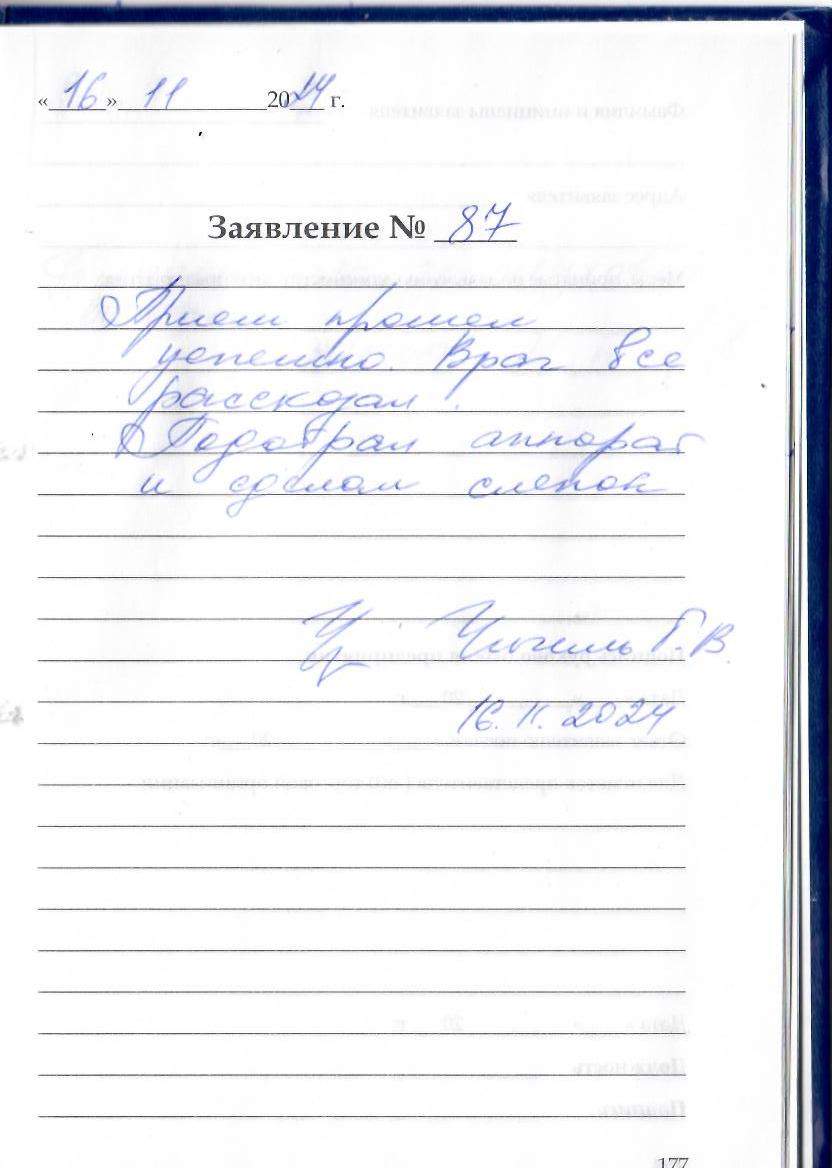 «16» 11 2024 г.
Заявление № 87
Прием прошел
успешно. Врач все
рассказал.
Подобрал аппарат
и сделал слепок
Г.В.
16.11.2024
177